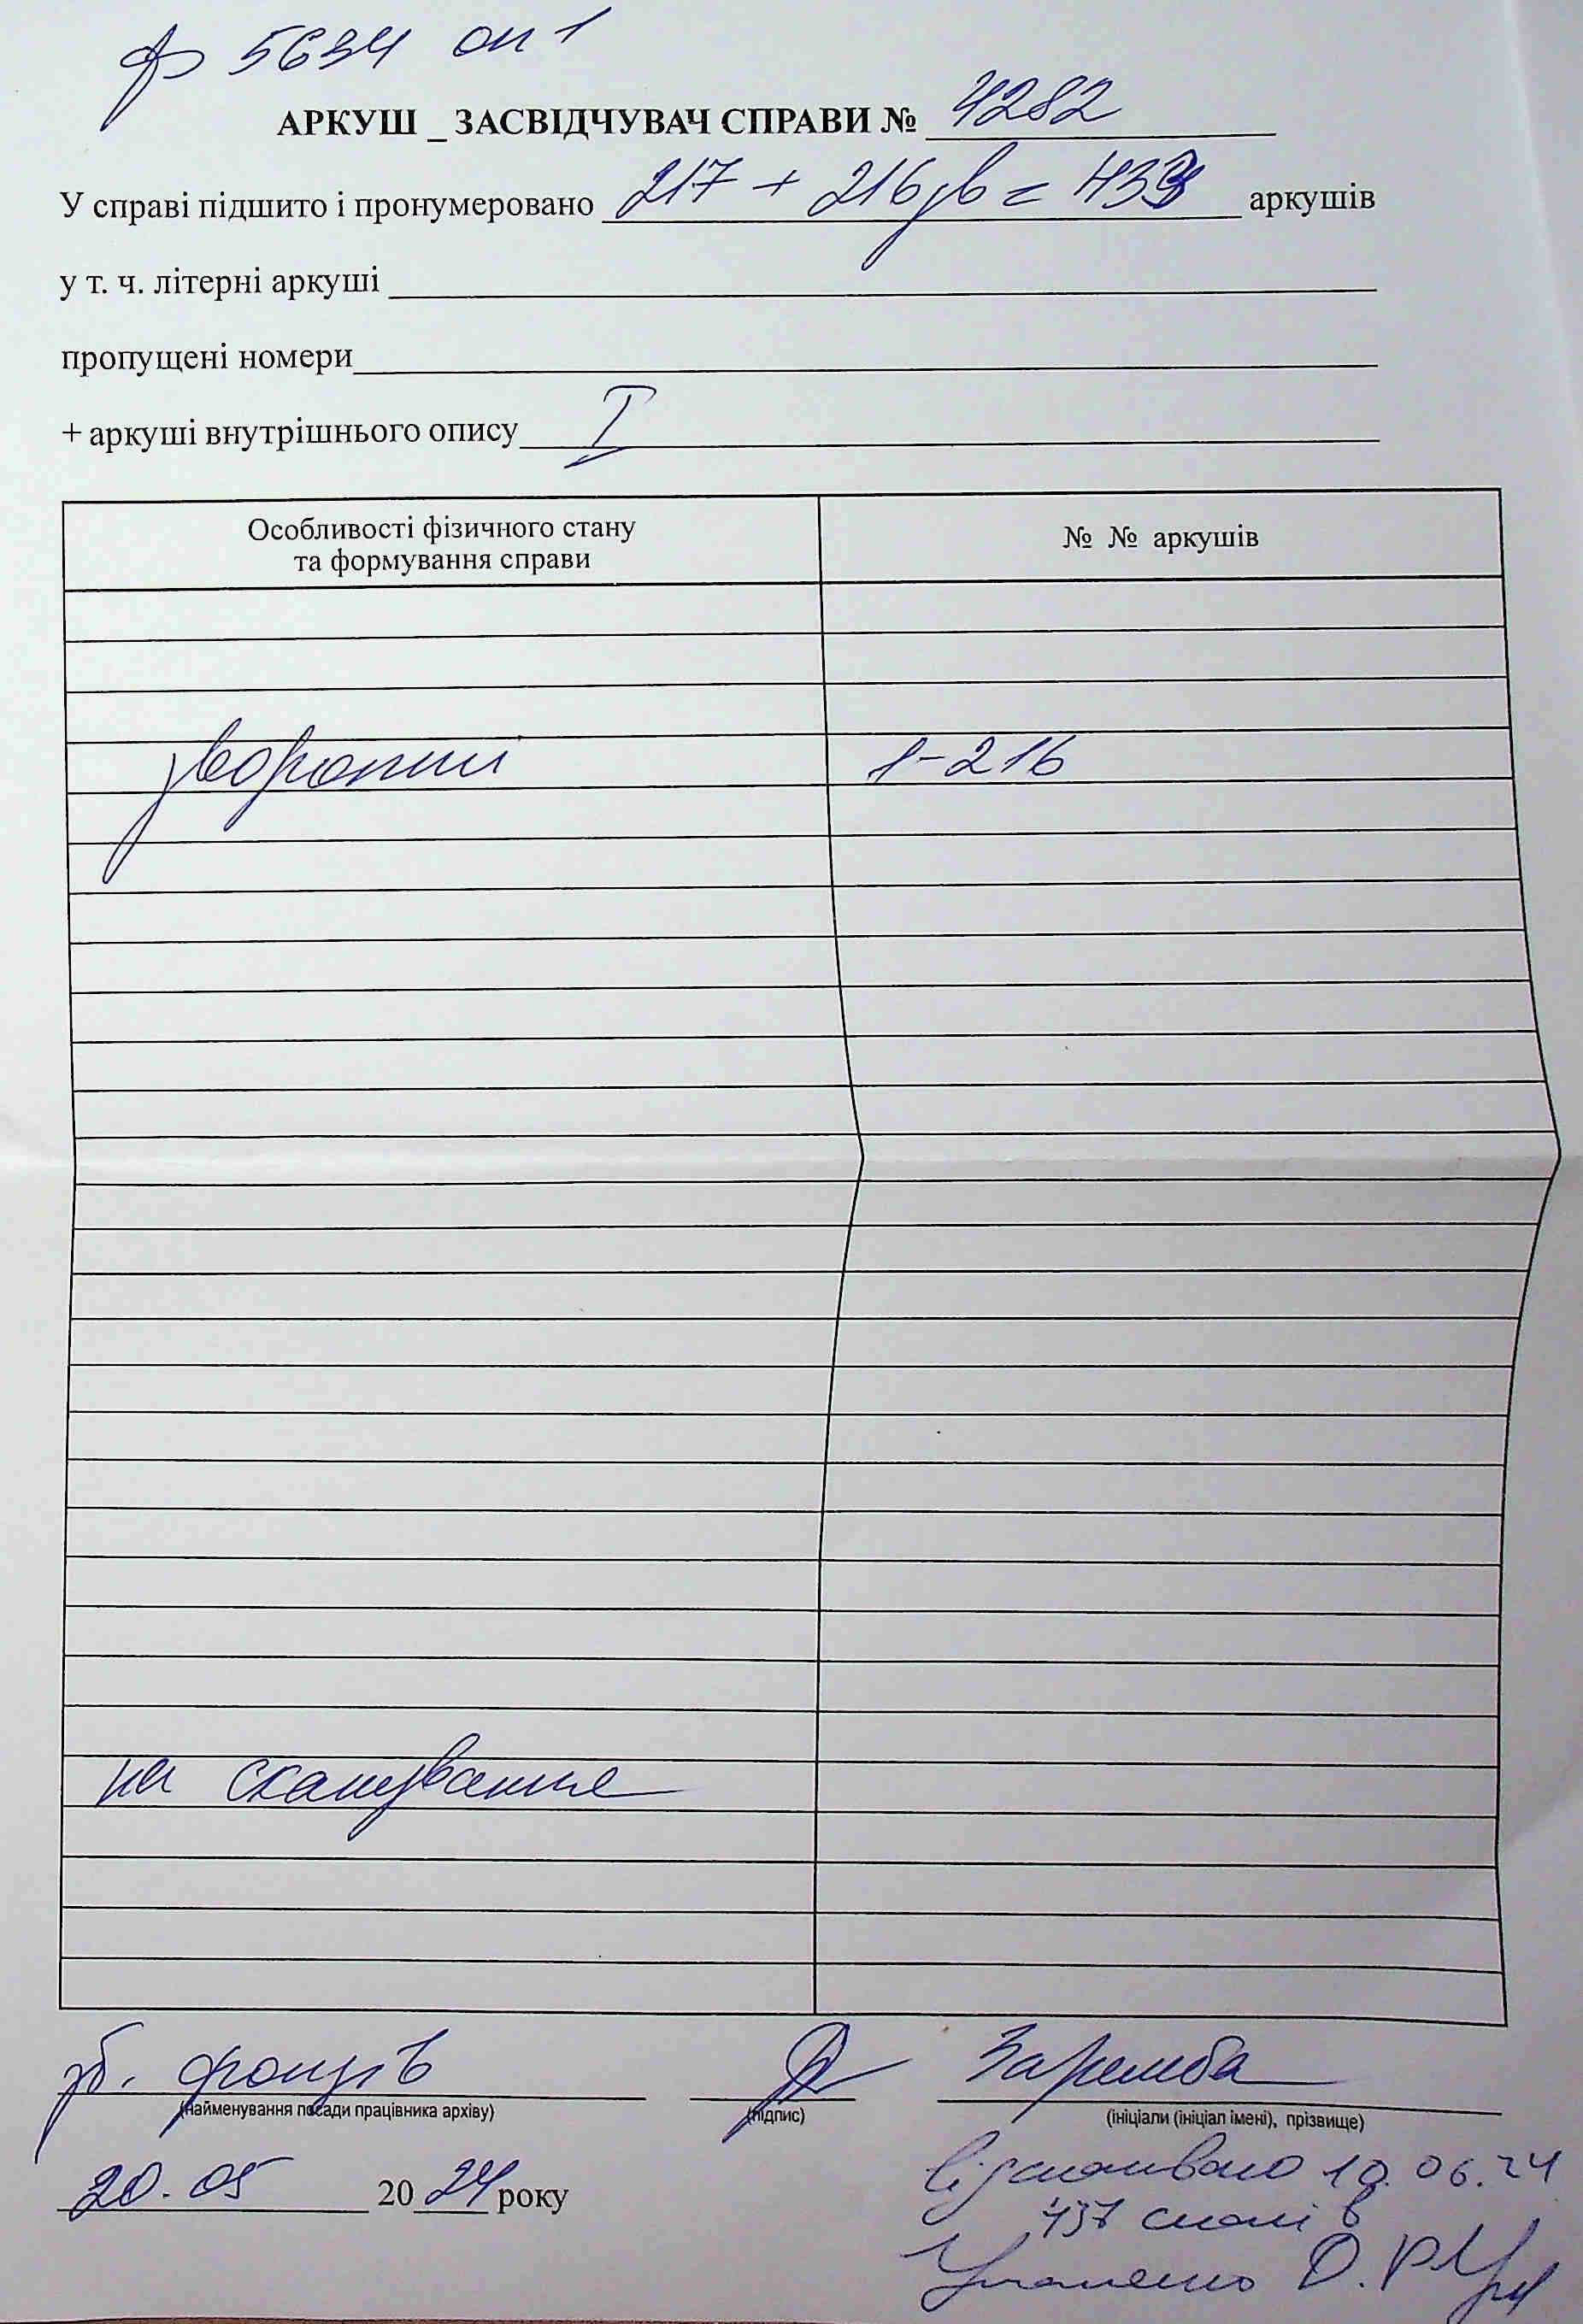 ф 5634 оп 1
АРКУШ _ ЗАСВІДЧУВАЧ СПРАВИ № 4282
У справі підшито і пронумеровано 217 + 216 зв = 433 аркушів
у т. ч. літерні аркуші
пропущені номери
+ аркуші внутрішнього опису I
Особливості фізичного стану та формування справи
№ № аркушів
звороти 1-216
на сканування
зб. фондів Заремба
(найменування посади працівника архіву) (підпис) (ініціали (ініціал імені), прізвище)
20.05 2024 року
відскановано 10.06.24
437 сканів
О.